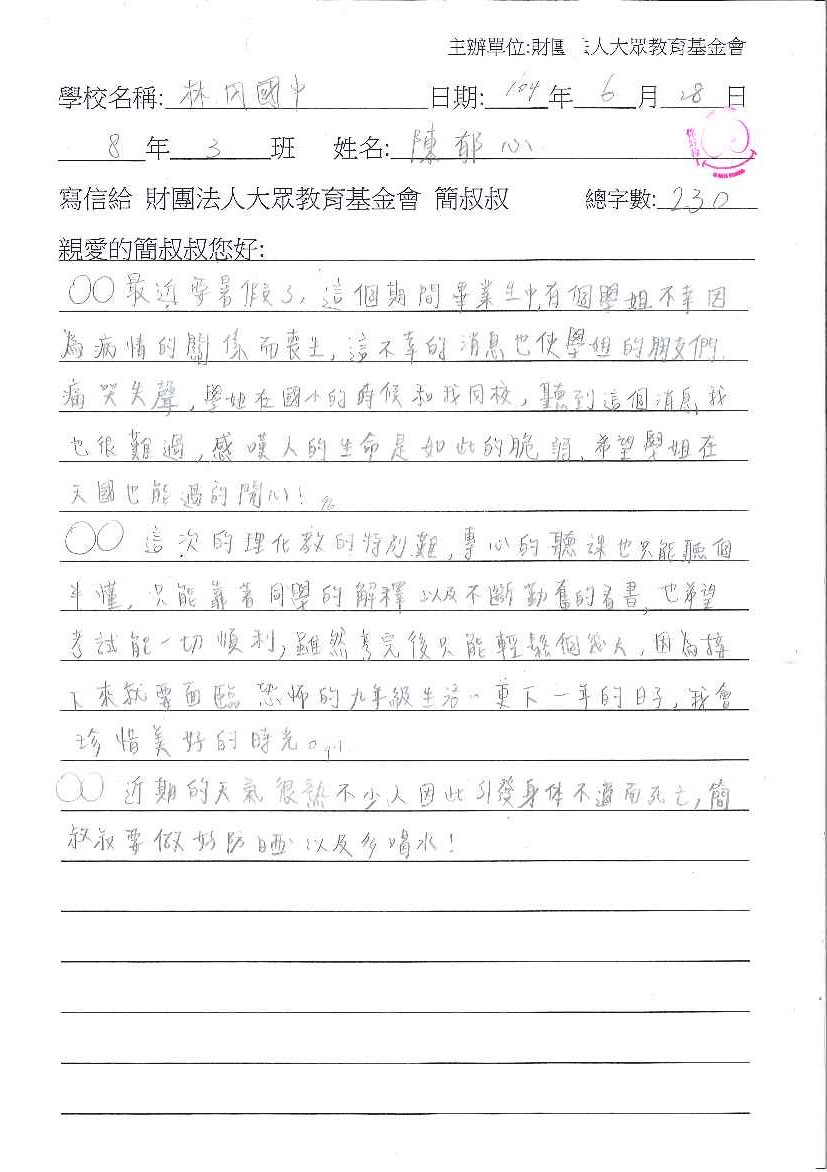 主辦單位:財團法人大眾教育基金會
學校名稱: 林內國中 日期: 104 年 6 月 28 日
8 年 3 班 姓名: 陳郁心
寫信給 財團法人大眾教育基金會 簡叔叔 總字數: 230
親愛的簡叔叔您好:
○○最近要暑假了,這個期間畢業生中,有個學姐不幸因
為病情的關係而喪生,這不幸的消息也使學姐的朋友們
痛哭失聲,學姐在國小的時候和我同校,聽到這個消息,我
也很難過,感嘆人的生命是如此的脆弱,希望學姐在
天國也能過的開心!
○○這次的理化教的特別難,專心的聽課也只能聽個
半懂,只能靠著同學的解釋以及不斷勤奮的看書,也希望
考試能一切順利,雖然考完後只能輕鬆個幾天,因為接
下來就要面臨恐怖的九年級生活,剩下一年的日子,我會
珍惜美好的時光。
○○近期的天氣很熱不少人因此引發身体不適而死亡,簡
叔叔要做好防曬以及多喝水!